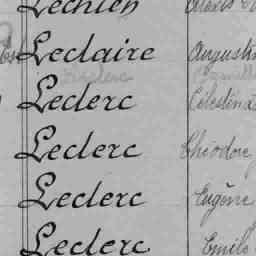 Lechien Alexis
Leclaire Augustin
Leclerc
Leclerc Célestin
Leclerc Théodore
Leclerc Eugène
Leclerc Emile